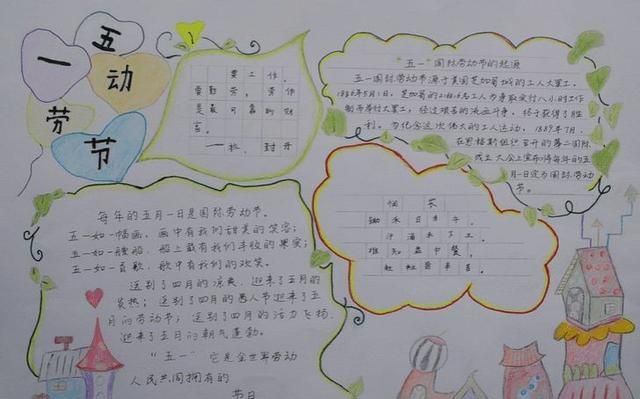 五一劳动节
要工作,
要勤劳,劳作
是最可靠的财
富。
——拉·封丹
"五一"国际劳动节的起源
五一国际劳动节源于美国芝加哥城的工人大罢工。
1886年5月1日,芝加哥的21.6万名工人为争取实行八小时工作
制而举行大罢工,经过艰苦的流血斗争,终于获得了胜
利。为纪念这次伟大的工人运动,1889年7月,
在恩格斯组织召开的第二国际
成立大会上宣布将每年的五
月一日定为国际劳动
节。
悯农
锄禾日当午,
汗滴禾下土。
谁知盘中餐,
粒粒皆辛苦。
每年的五月一日是国际劳动节。
五一如一幅画,画中有我们甜美的笑容;
五一如一艘船,船上载有我们丰收的果实;
五一如一首歌,歌中有我们的欢笑。
送别了四月的凉爽,迎来了五月的
炎热;送别了四月的愚人节迎来了五
月的劳动节;送别了四月的活力飞扬,
迎来了五月的朝气蓬勃。
"五一"它是全世界劳动
人民共同拥有的
节日